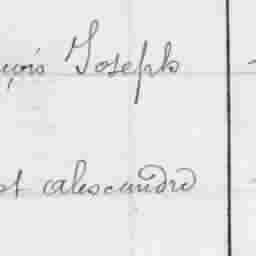 çois Joseph
st alexandre